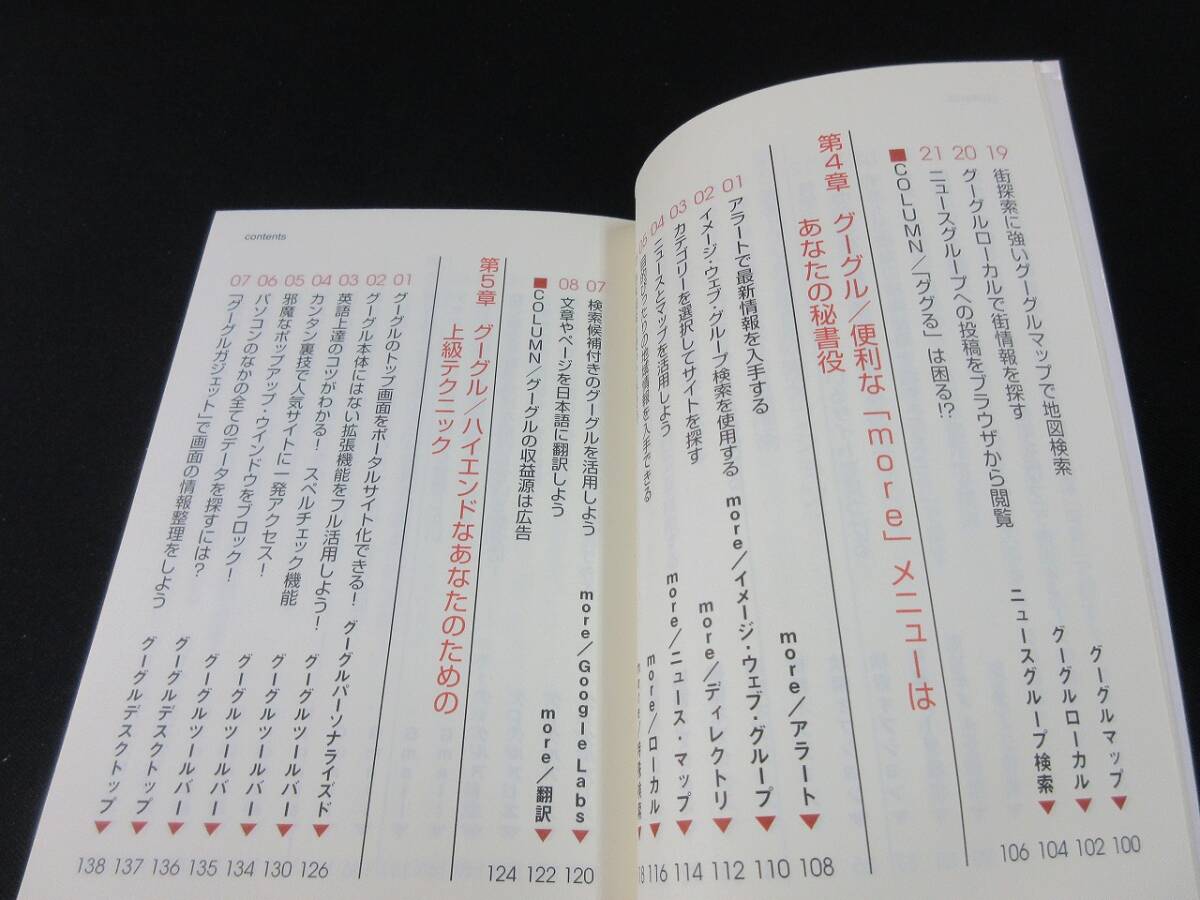 19 街探索に強いグーグルマップで地図検索 グーグルマップ▼ 100
20 グーグルローカルで街情報を探す グーグルローカル▼ 102
21 ニュースグループへの投稿をブラウザから閲覧 ニュースグループ検索▼ 104
■COLUMN／「ググる」は困る!? 106
第4章 グーグル／便利な「more」メニューは
あなたの秘書役
01 アラートで最新情報を入手する more／アラート▼ 108
02 イメージ・ウェブ・グループ検索を使用する more／イメージ・ウェブ・グループ▼ 110
03 カテゴリーを選択してサイトを探す more／ディレクトリ▼ 112
04 ニュースとマップを活用しよう more／ニュース・マップ▼ 114
more／ローカル▼ 116
contents
07 検索候補付きのグーグルを活用しよう more／Google Labs▼ 120
08 文章やページを日本語に翻訳しよう more／翻訳▼ 122
■COLUMN／グーグルの収益源は広告 124
第5章 グーグル／ハイエンドなあなたのための
上級テクニック
01 グーグルのトップ画面をポータルサイト化できる！ グーグルパーソナライズド▼ 126
02 グーグル本体にはない拡張機能をフル活用しよう！ グーグルツールバー▼ 130
03 英語上達のコツがわかる！ スペルチェック機能 グーグルツールバー▼ 134
04 カンタン裏技で人気サイトに一発アクセス！ グーグルツールバー▼ 135
05 邪魔なポップアップ・ウインドウをブロック！ グーグルツールバー▼ 136
06 パソコンのなかの全てのデータを探すには？ グーグルデスクトップ▼ 137
07 「グーグルガジェット」で画面の情報整理をしよう グーグルデスクトップ▼ 138